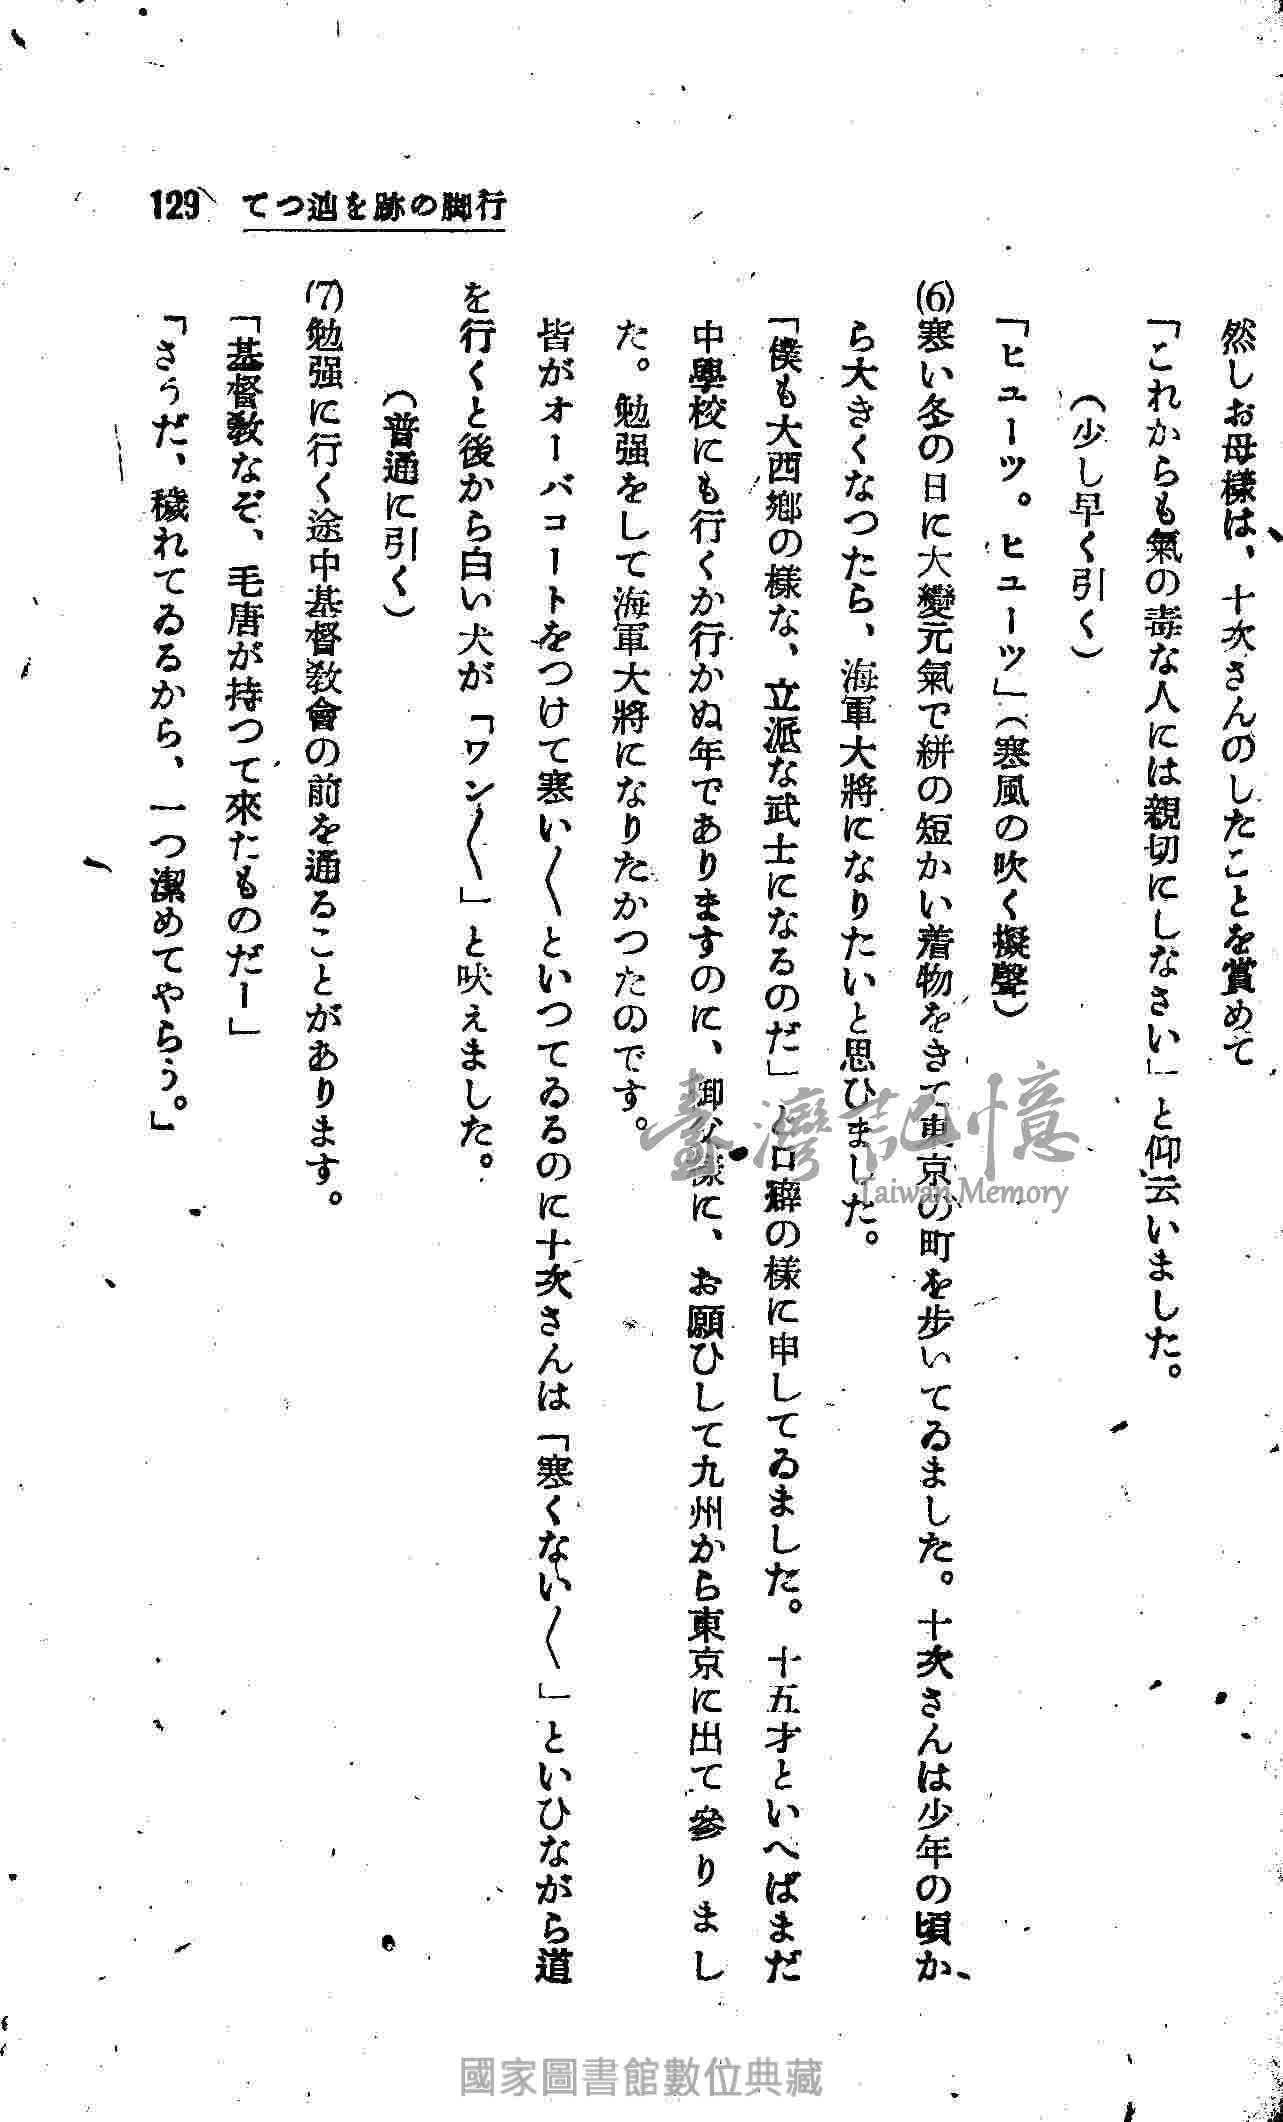 129 てつ辿を跡の脚行
然しお母樣は、十次さんのしたことを賞めて
「これからも氣の毒な人には親切にしなさい」と仰云いました。
(少し早く引く)
「ヒューツ。ヒューツ」(寒風の吹く擬聲)
(6)寒い冬の日に大變元氣で絣の短かい着物をきて東京の町を步いてゐました。十次さんは少年の頃か
ら大きくなつたら、海軍大將になりたいと思ひました。
「僕も大西鄕の樣な、立派な武士になるのだ」と口癖の樣に申してゐました。十五才といへばまだ
中學校にも行くか行かぬ年でありますのに、御父樣に、お願ひして九州から東京に出て參りまし
た。勉强をして海軍大將になりたかつたのです。
皆がオーバコートをつけて寒い〱といつてゐるのに十次さんは「寒くない〱」といひながら道
を行くと後から白い犬が「ワン〱」と吠えました。
(普通に引く)
(7)勉强に行く途中基督敎會の前を通ることがあります。
「基督敎なぞ、毛唐が持つて來たものだー」
「さうだ、穢れてゐるから、一つ潔めてやらう。」
臺灣記憶
Taiwan Memory
國家圖書館數位典藏